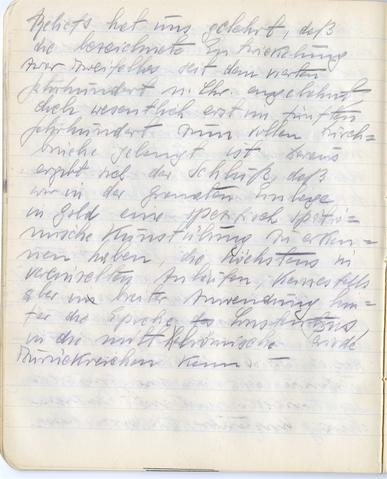 Reliefs hat uns gelehrt, daß
die bezeichnete Entwicklung
zwar zweifellos seit dem vierten
Jahrhundert n. Chr. angebahnt,
doch wesentlich erst im fünften
Jahrhundert zum vollen Durch-
bruche gelangt ist. Daraus
ergibt sich der Schluß, daß
wir in der Granaten Einlage
in Gold eine spezifisch spätrö-
mische Kunstübung zu erken-
nen haben, die höchstens in
vereinzelten Anläufen, keinesfalls
aber in breiter Anwendung hin-
ter die Epoche Constantins
in die mittelrömische Periode
zurückreichen kann. –